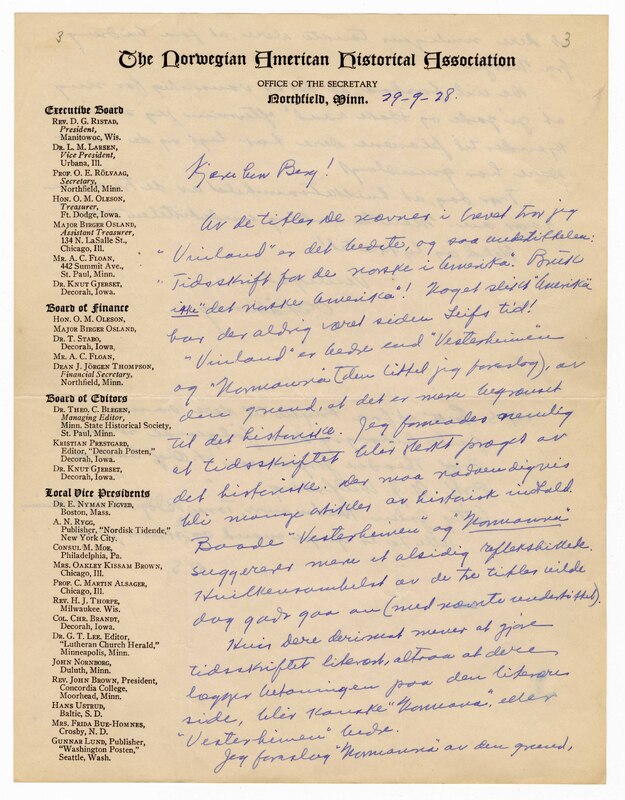 3
3
The Norwegian American Historical Association
OFFICE OF THE SECRETARY
Northfield, Minn. 29-9-28.
Executive Board
REV. D. G. RISTAD,
President,
Manitowoc, Wis.
DR. L. M. LARSEN,
Vice President,
Urbana, Ill.
PROF. O. E. RÖLVAAG,
Secretary,
Northfield, Minn.
HON. O. M. OLESON,
Treasurer,
Ft. Dodge, Iowa.
MAJOR BIRGER OSLAND,
Assistant Treasurer,
134 N. LaSalle St.,
Chicago, Ill.
MR. A. C. FLOAN,
442 Summit Ave.,
St. Paul, Minn.
DR. KNUT GJERSET,
Decorah, Iowa.
Board of Finance
HON. O. M. OLESON,
MAJOR BIRGER OSLAND,
DR. T. STABO,
Decorah, Iowa.
MR. A. C. FLOAN,
DEAN J. JÖRGEN THOMPSON,
Financial Secretary,
Northfield, Minn.
Board of Editors
DR. THEO. C. BLEGEN,
Managing Editor,
Minn. State Historical Society,
St. Paul, Minn.
KRISTIAN PRESTGARD,
Editor, "Decorah Posten,"
Decorah, Iowa.
DR. KNUT GJERSET,
Decorah, Iowa.
Local Vice Presidents
DR. E. NYMAN FIGVED,
Boston, Mass.
A. N. RYGG,
Publisher, "Nordisk Tidende,"
New York City.
CONSUL M. MOE,
Philadelphia, Pa.
MRS. OAKLEY KISSAM BROWN,
Chicago, Ill.
PROF. C. MARTIN ALSAGER,
Chicago, Ill.
REV. H. J. THORPE,
Milwaukee. Wis.
COL. CHR. BRANDT,
Decorah, Iowa.
DR. G. T. LEE, Editor,
"Lutheran Church Herald,"
Minneapolis, Minn.
JOHN NORNBORG,
Duluth, Minn.
REV. JOHN BROWN, President,
Concordia College,
Moorhead, Minn.
HANS USTRUD,
Baltic, S. D.
MRS. FRIDA BUE-HOMNES,
Crosby, N. D.
GUNNAR LUND, Publisher,
"Washington Posten,"
Seattle, Wash.
Kjære herr Berg!
Av de titler De nævner i brevet tror jeg
"Vinland" er det bedste, og saa undertitelen:
Tidsskrift for de norske i Amerika". Bruk
ikke "det norske Amerika"! Noget slikt "Amerika"
har der aldrig været siden Leifs tid!
"Vinland" er bedre end "Vesterheimen"
og "Normanna" (den tittel jeg foreslog), av
den grund, at det er mere begrænset
til det historiske. Jeg formoder nemlig
at tidsskriftet blir sterkt præget av
det historiske. Der maa nødvendigvis
bli mange artikler av historisk indhold.
Baade "Vesterheimen" og "Normanna"
suggererer mere et alsidig
Hvilkensomhelst av de tre titler vilde
dog godt gaa an (med nævnte undertittel).
Hvis Dere derimot mener at gjøre
tidsskriftet literært, altsaa at dere
lægger betoningen paa den literære
side, blir kanske "Normanna", eller
"Vesterheimen" bedre.
Jeg foreslog "Normanna" av den grund,